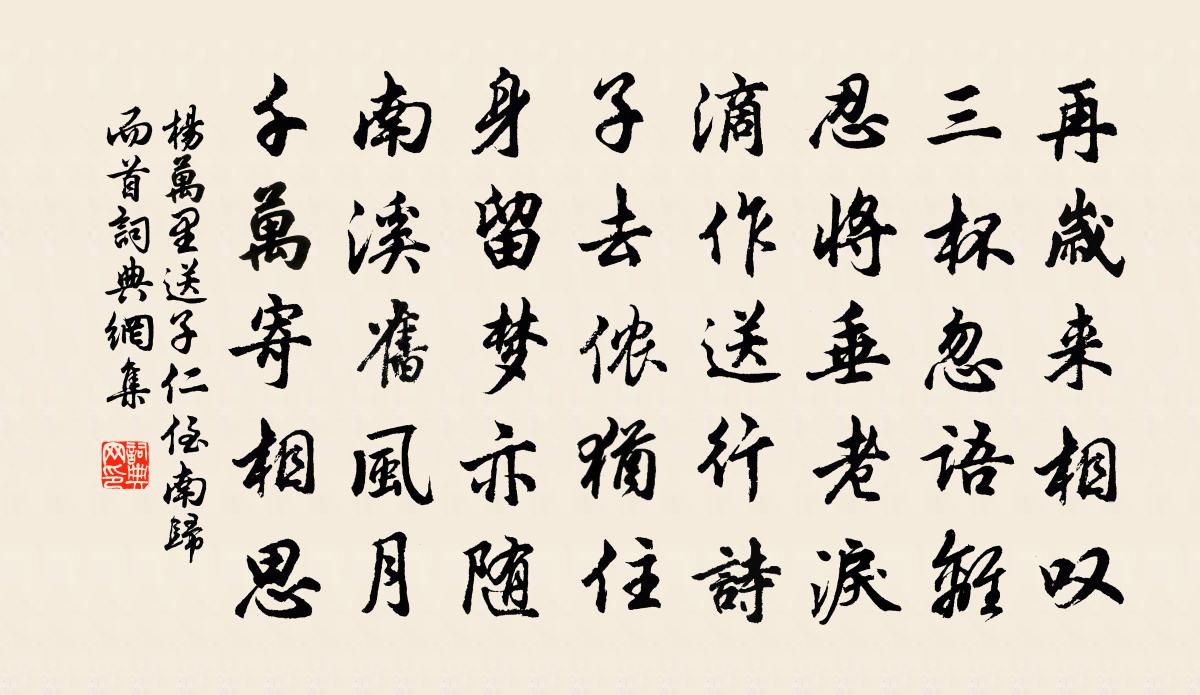 再歲来相叹
三杯忽語離
忍將垂老淚
滴作送行詩
子去侬猶住
身留梦亦随
南溪舊風月
千萬寄相思
楊萬里送子仁侄南歸
而首詞典網集
詞典网印